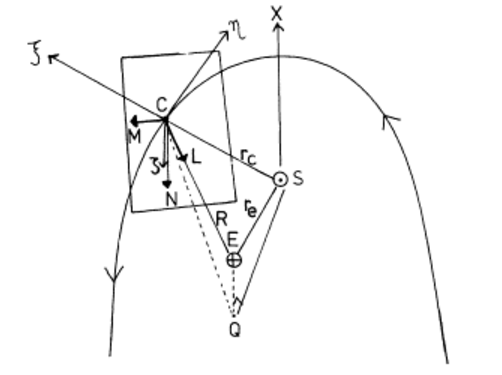 X
ξ
η
C
M
ζ
L
N
r_c
S
R
r_e
E
Q